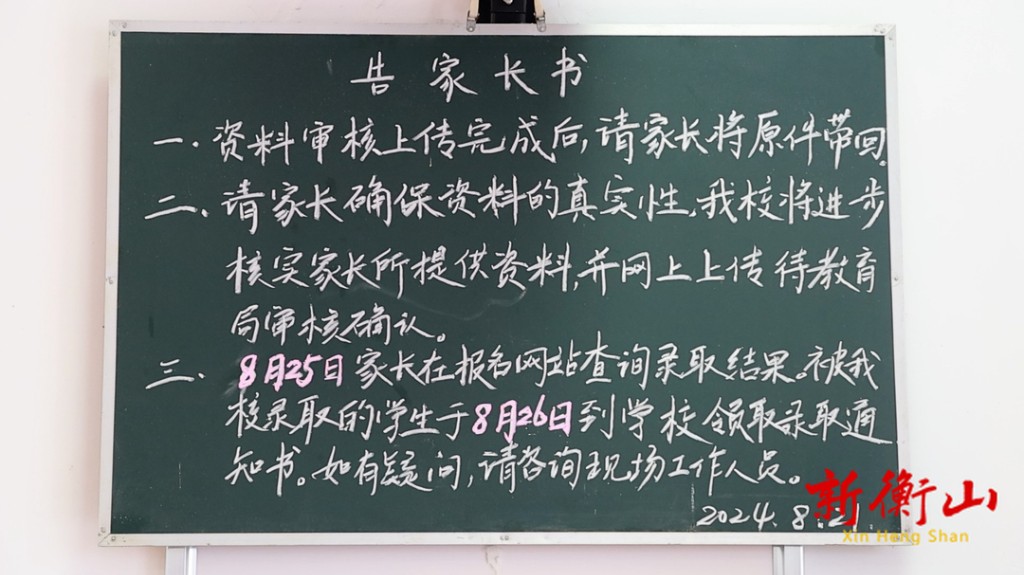 告家长书
一.资料审核上传完成后,请家长将原件带回.
二、请家长确保资料的真实性,我校将进步
核实家长所提供资料,并网上上传待教育
局审核确认。
三.8月25日家长在报名网站查询录取结果。被我
校录取的学生于8月26日到学校领取录取通
知书。如有疑问,请咨询现场工作人员。
2024.8.
新衡山
Xin Heng Shan